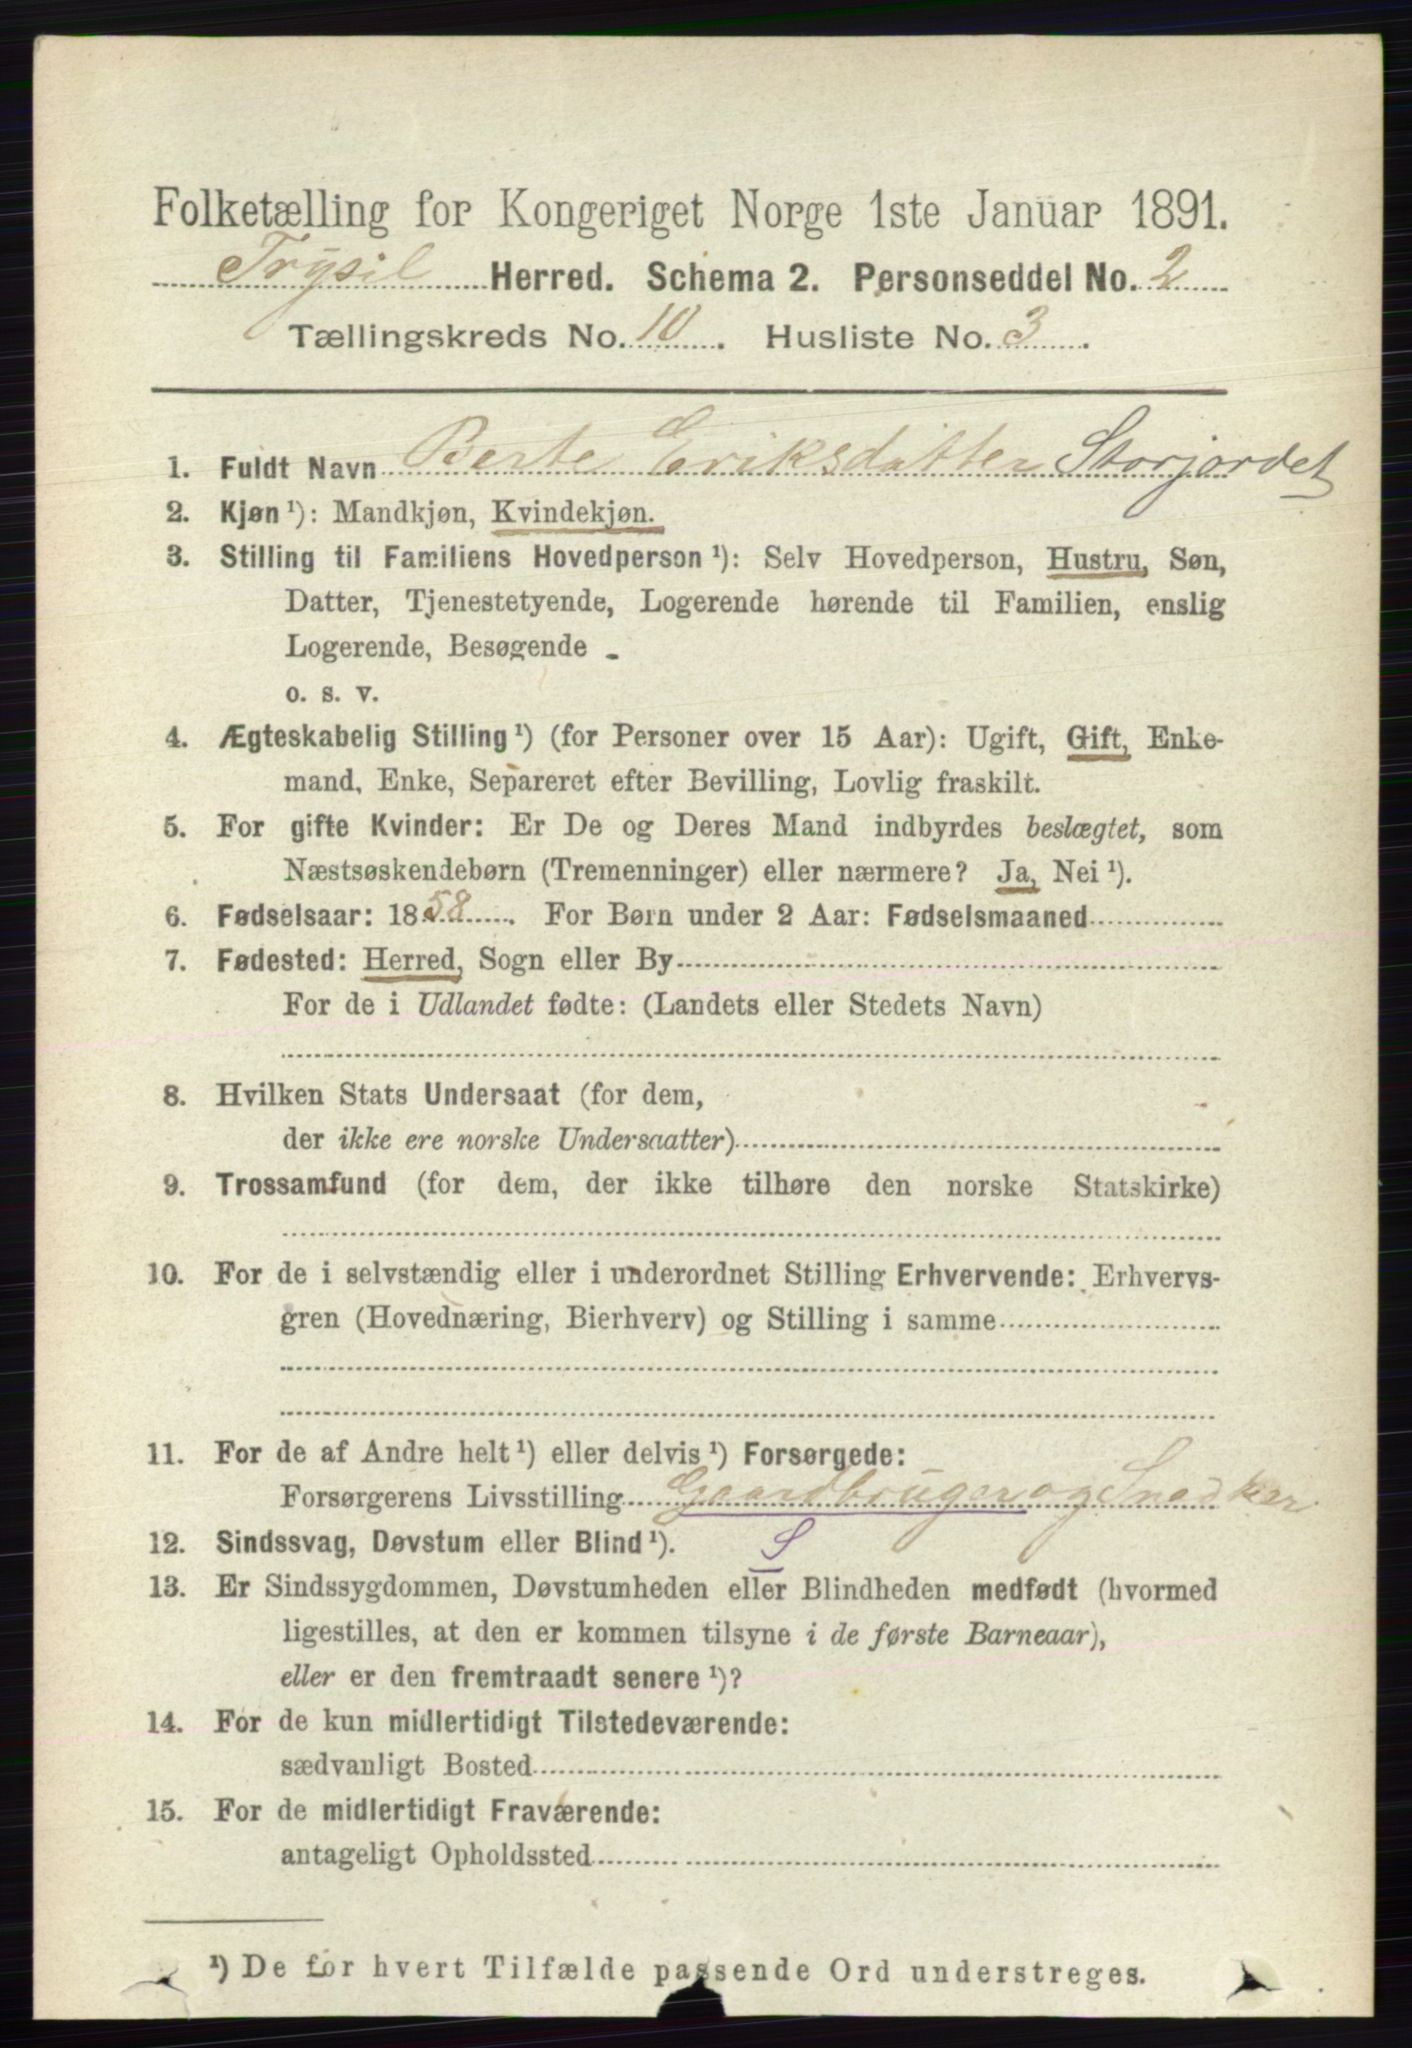 Folketælling for Kongeriget Norge 1ste Januar 1891.
Trysil Herred. Schema 2. Personseddel No. 2
Tællingskreds No. 10. Husliste No. 3.
1. Fuldt Navn Berte Eriksdatter Storjordet
2. Kjøn ¹): Mandkjøn, Kvindekjøn.
3. Stilling til Familiens Hovedperson ¹): Selv Hovedperson, Hustru, Søn,
Datter, Tjenestetyende, Logerende hørende til Familien, enslig
Logerende, Besøgende
o. s. v.
4. Ægteskabelig Stilling ¹) (for Personer over 15 Aar): Ugift, Gift, Enke-
mand, Enke, Separeret efter Bevilling, Lovlig fraskilt.
5. For gifte Kvinder: Er De og Deres Mand indbyrdes beslægtet, som
Næstsøskendebørn (Tremenninger) eller nærmere? Ja, Nei ¹).
6. Fødselsaar: 1858. For Børn under 2 Aar: Fødselsmaaned
7. Fødested: Herred, Sogn eller By
For de i Udlandet fødte: (Landets eller Stedets Navn)
8. Hvilken Stats Undersaat (for dem,
der ikke ere norske Undersaatter)
9. Trossamfund (for dem, der ikke tilhøre den norske Statskirke)
10. For de i selvstændig eller i underordnet Stilling Erhvervende: Erhvervs-
gren (Hovednæring, Bierhverv) og Stilling i samme
11. For de af Andre helt ¹) eller delvis ¹) Forsørgede:
Forsørgerens Livsstilling Gaardbruger og Snedker
12. Sindssvag, Døvstum eller Blind ¹). S
13. Er Sindssygdommen, Døvstumheden eller Blindheden medfødt (hvormed
ligestilles, at den er kommen tilsyne i de første Barneaar),
eller er den fremtraadt senere ¹)?
14. For de kun midlertidigt Tilstedeværende:
sædvanligt Bosted
15. For de midlertidigt Fraværende:
antageligt Opholdssted
¹) De for hvert Tilfælde passende Ord understreges.